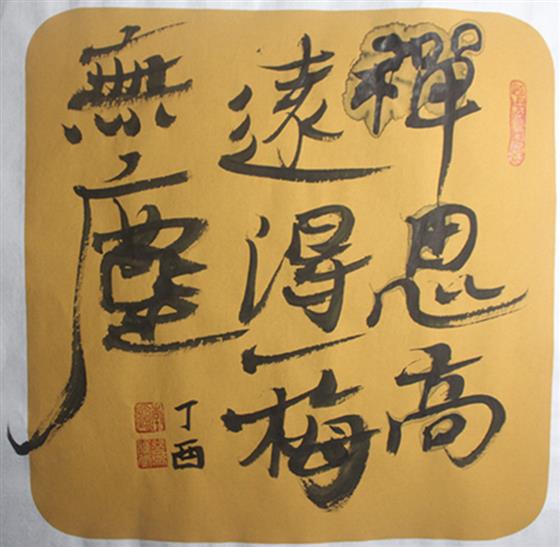 禪思高
遠得一梅
無塵
丁酉